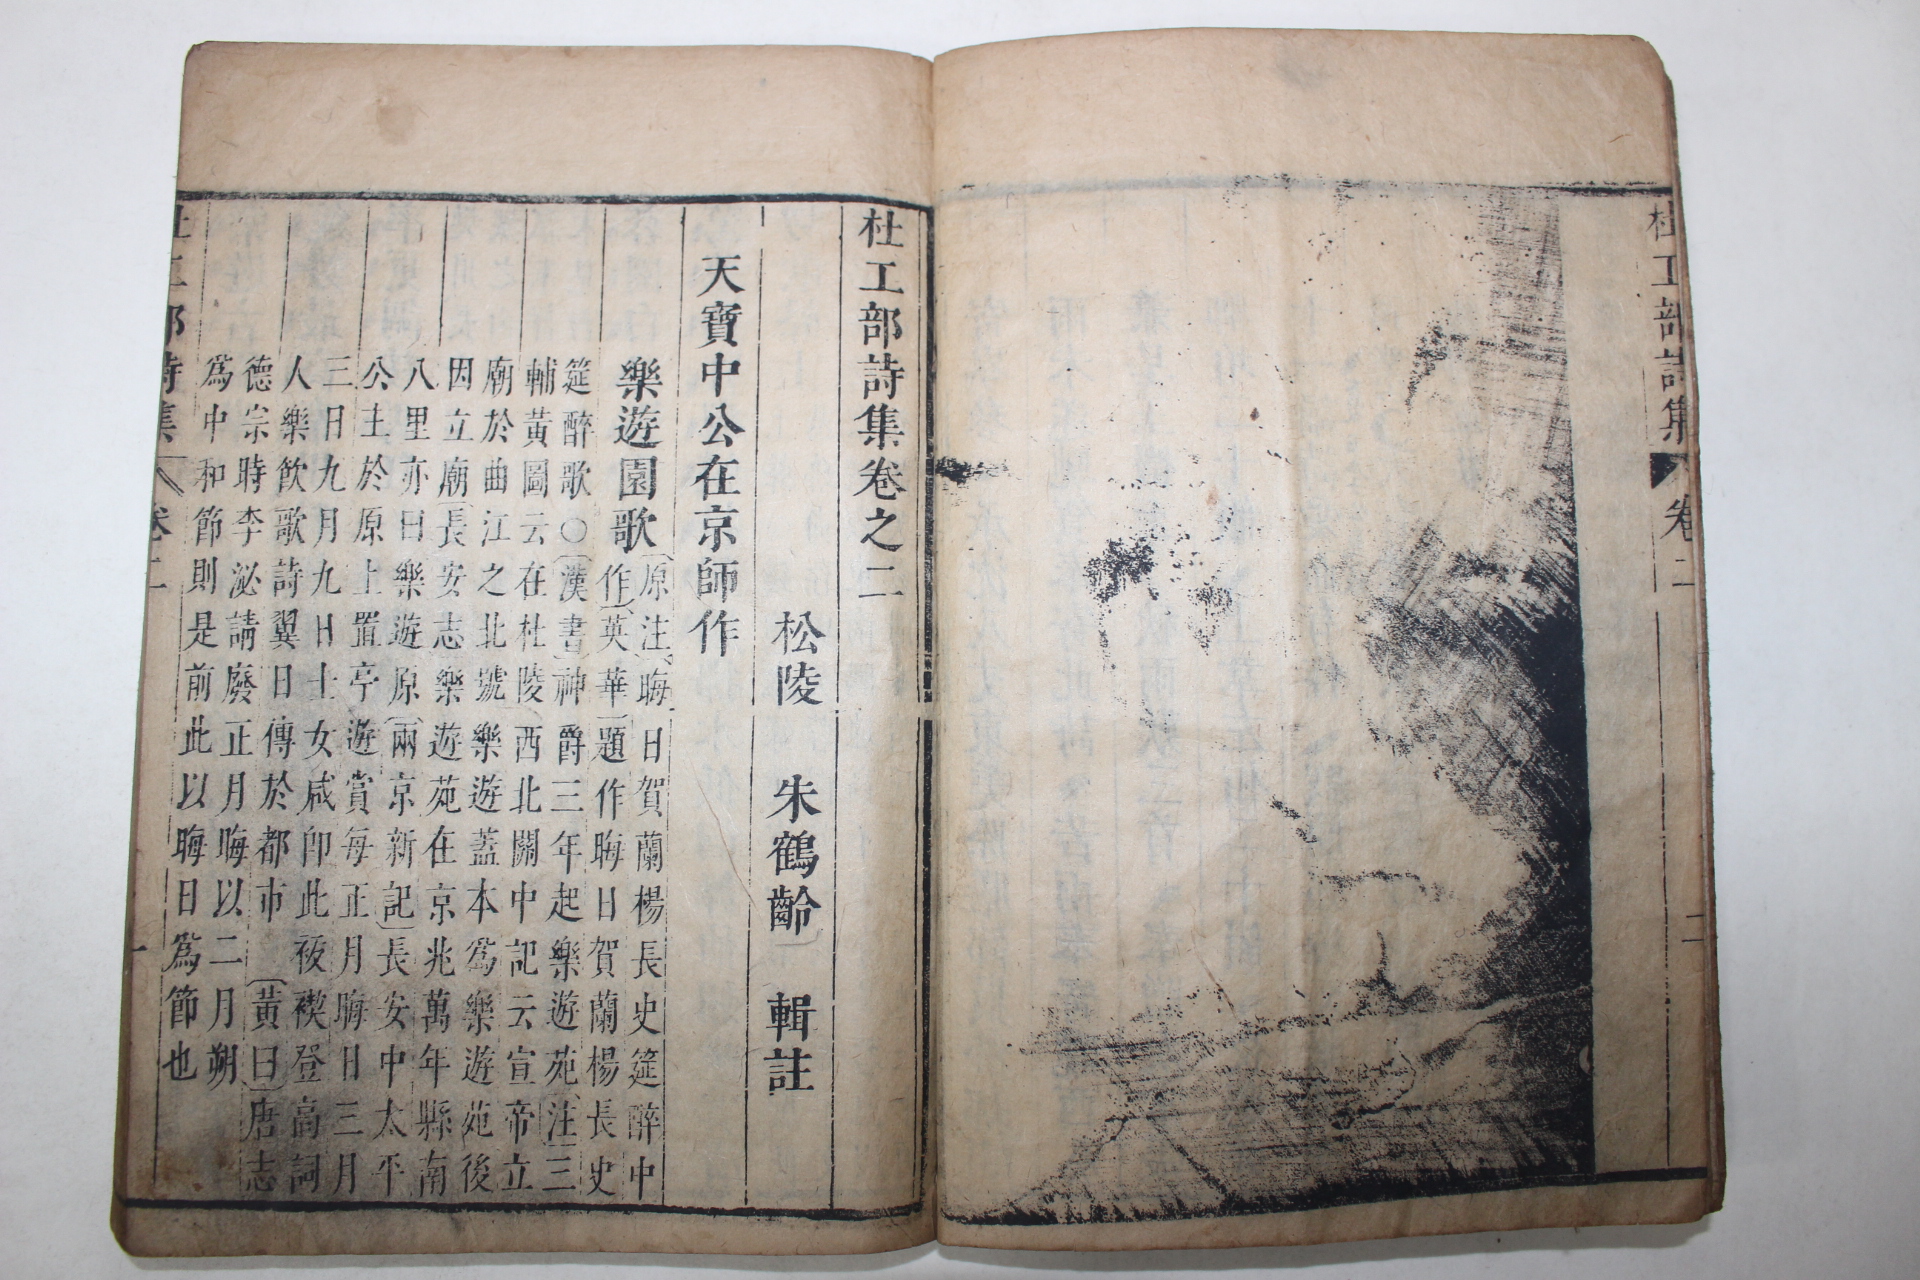 杜工部詩集 卷二 二
杜工部詩集卷之二
松陵 朱鶴齡 輯註
天寶中公在京師作
樂遊園歌
〔原注〕晦日賀蘭楊長史筵醉中
作〔英華〕題作晦日賀蘭楊長史
筵醉歌○〔漢書〕神爵三年起樂遊苑〔注〕三
輔黃圖云在杜陵西北關中記云宣帝立
廟於曲江之北號樂遊蓋本爲樂遊苑後
因立廟〔長安志〕樂遊苑在京兆萬年縣南
八里亦曰樂遊原〔兩京新記〕長安中太平
公主於原上置亭遊賞每正月晦日三月
三日九月九日士女咸卽此祓禊登高詞
人樂飲歌詩翼日傳於都市〔黃曰〕唐志
德宗時李泌請廢正月晦以二月朔
爲中和節則是前此以晦日爲節也
杜工部詩集 卷二 一